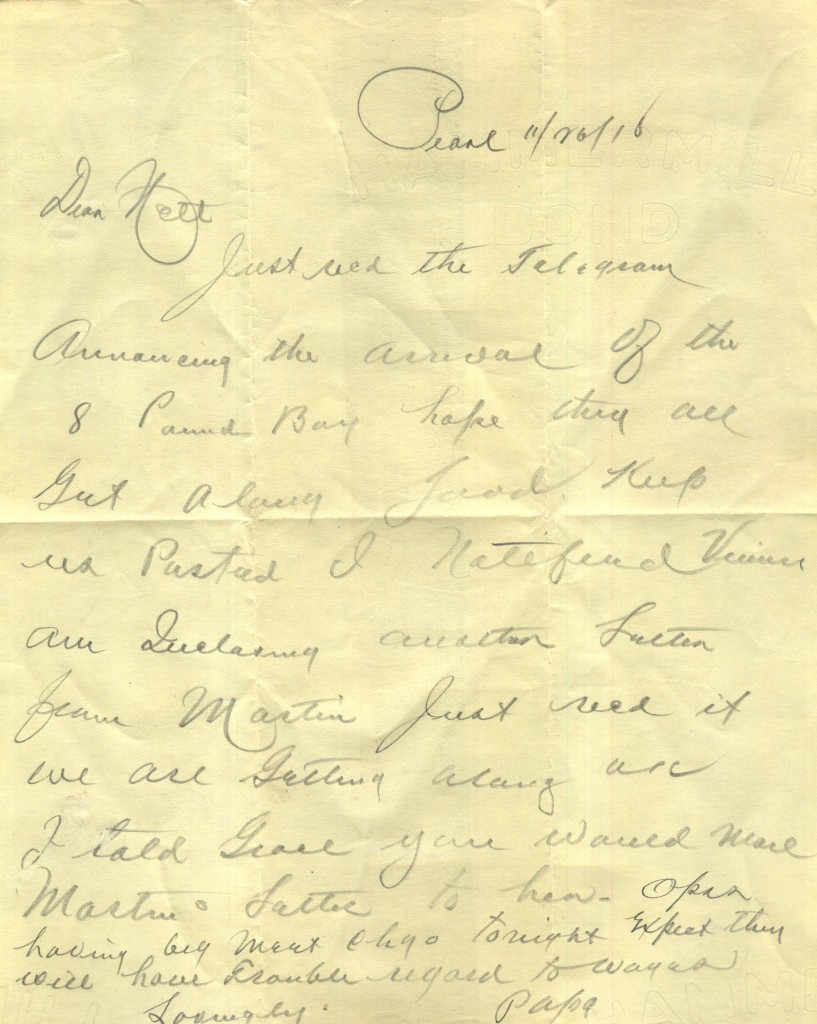 Pearl 11/26/16
HAMMERMILL
BOND
Dear Nett
Just recd the Telegram
Annoncing the arrival of the
8 Pound Boy hope they all
Get along Good Keep
us Posted I Notefied
am Inclosing another Letter
from Martin Just recd it
we are Getting along
I told Grace you would mail
Martins Letter to her.
having big meet Chgo tonight Expect they
will have Trouble regard to wages
Lovingly Papa